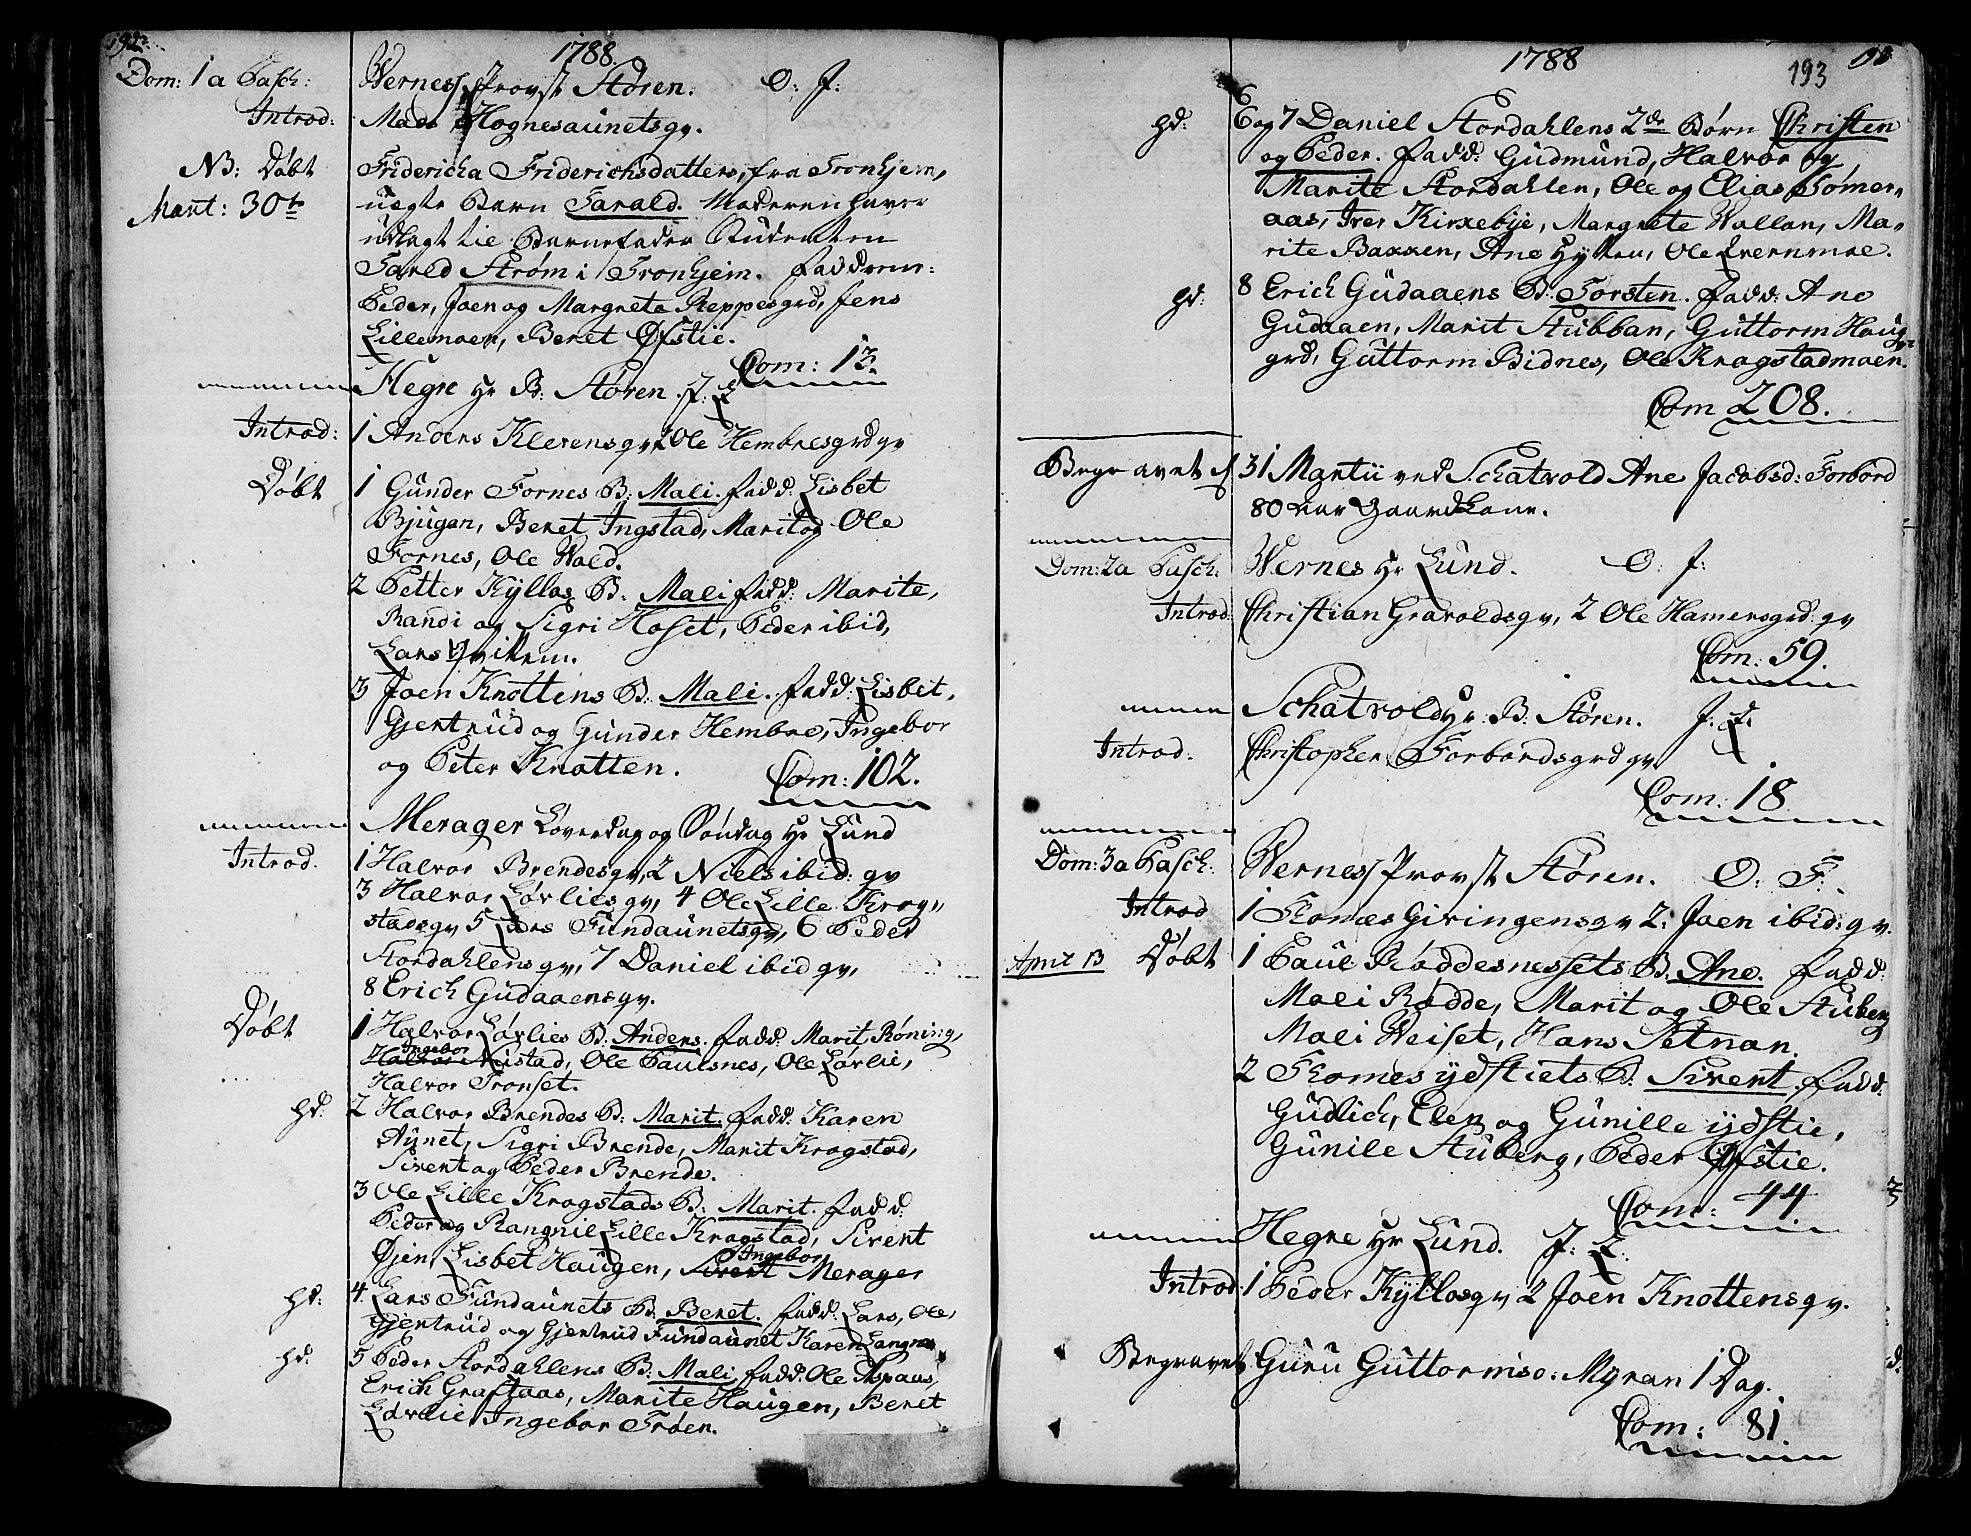 192
1788
Dom: 1a Pasch: Wernes Provst Støren. O: J:
Introd: Mads Hognesaunetsgv.
NB: Døbt Fridericha Friderichsdatters, fra Tronhjem,
Mart: 30te uegte Barn Tarald. Moderen haver
udlagt til Barnefader Studenten
Tarld Strøm i Tronhjem. Faddere:
Peder, Joen og Margrete Reppesgrd, Jens
Lillemoen, Beret Øfstie.
Com: 13.
Hegre Hr B: Støren. J: L
Introd: 1 Anders Kleivensgv, 2 Ole Hembresgrdgv
Døbt 1 Gunder Fornes B: Mali. Fadd: Lisbet
Bjugan, Beret Ingstad, Marit og Ole
Fornes, Ole Wold.
2 Petter Kyllos B: Mali Fadd: Marite,
Randi og Sigri Hoset, Peder ibid,
Lars
3 Joen Knottens B: Mali. Fadd: Lisbet,
Gjertrud og Gunder Hembre, Ingebor
og Peter Knotten.
Com: 102.
Merager Løverdag og Søndag Hr Lund
Introd. 1 Halvor Brendesgv, 2 Niels ibid: gv
3 Halvor Lørliesgv, 4 Ole Lille Krog"
stadsgv 5 Lars Fundaunetsgv, 6 Peder
Stordahlensgv, 7 Daniel ibid gv,
8 Erich Gudaaensgv.
Døbt 1 Halvor Lørlies B: Anders. Fadd: Marit Røning,
Ingebor
Halvor Nistad, Ole Paulsnes, Ole Lørlie,
Halvor Tronset.
hd: 2 Halvor Brendes B: Marit. Fadd: Karen
Aunet, Sigri Brende, Marit Krogstad,
Sivert og Peder Brende.
3 Ole Lille Krogstads B: Marit. Fadd:
Peder og Rangnil Lille Krogstad, Sivert
Øjen, Lisbet Haugen, Sivert Ingebor Merager
hd: 4. Lars Fundaunets B: Beret. Fadd: Lars, Ole,
Gjertrud og Gjertrud Fundaunet Karen
hd: 5 Peder Stordahlens B: Mali, Fadd: Ole Aspaas,
Erich Graftaas, Marite Haugen, Beret
Lørlie, Ingebor Trøen.
1788
193
hd: 6 og 7 Daniel Stordahlens 2de Børn Christen
og Peder. Fadd: Gudmund, Halvor og
Marite Stordahlen, Ole og Elias Sømer"
aas, Iver Kirkebye, Margrete Wollan, Ma"
rite Bakken, Ane Hytten, Ole Evernmoe.
hd: 8 Erich Gudaaens B: Torsten. Fadd: Ane
Gudaaen, Marit Stubban, Guttorm Haug
grd, Guttorm Bidnes, Ole Krogstadmoen.
Com 208.
Begravet 31 Martii ved Schatvold Ane Jacobsd: Forbord
80 aar Gaardkone.
Dom: 2a Pasch: Wernes Hr Lund. O: J:
Introd Christian Gravoldsgv, 2 Ole Hamersgrd: gv
Com: 59.
Schatvold Hr: B: Støren. J: L.
Introd. Christopher Forbordsgrd gv
Com: 18
Dom: 3a Pasch: Wernes Provst Støren. O: F.
Introd 1 Thomes Givingensgv 2: Joen ibid: gv.
April 13 Døbt 1 Paul Røddesnessets B. Ane. Fadd:
Mali Rødde, Marit og Ole Stuberg
Mali Weiset, Hans Setnan.
2 Thomes ydstiets B: Sivert. Fadd:
Gudlich, Elen og Gunille ydstie,
Gunile Stuberg, Peder Øfstie.
Com: 44
Hegre Hr Lund. J: L.
Introd: 1 Peder Kyllosgv 2 Joen Knottensgv.
Begravet Guru Guttormsd: Myran 1 Dag.
Com: 81.